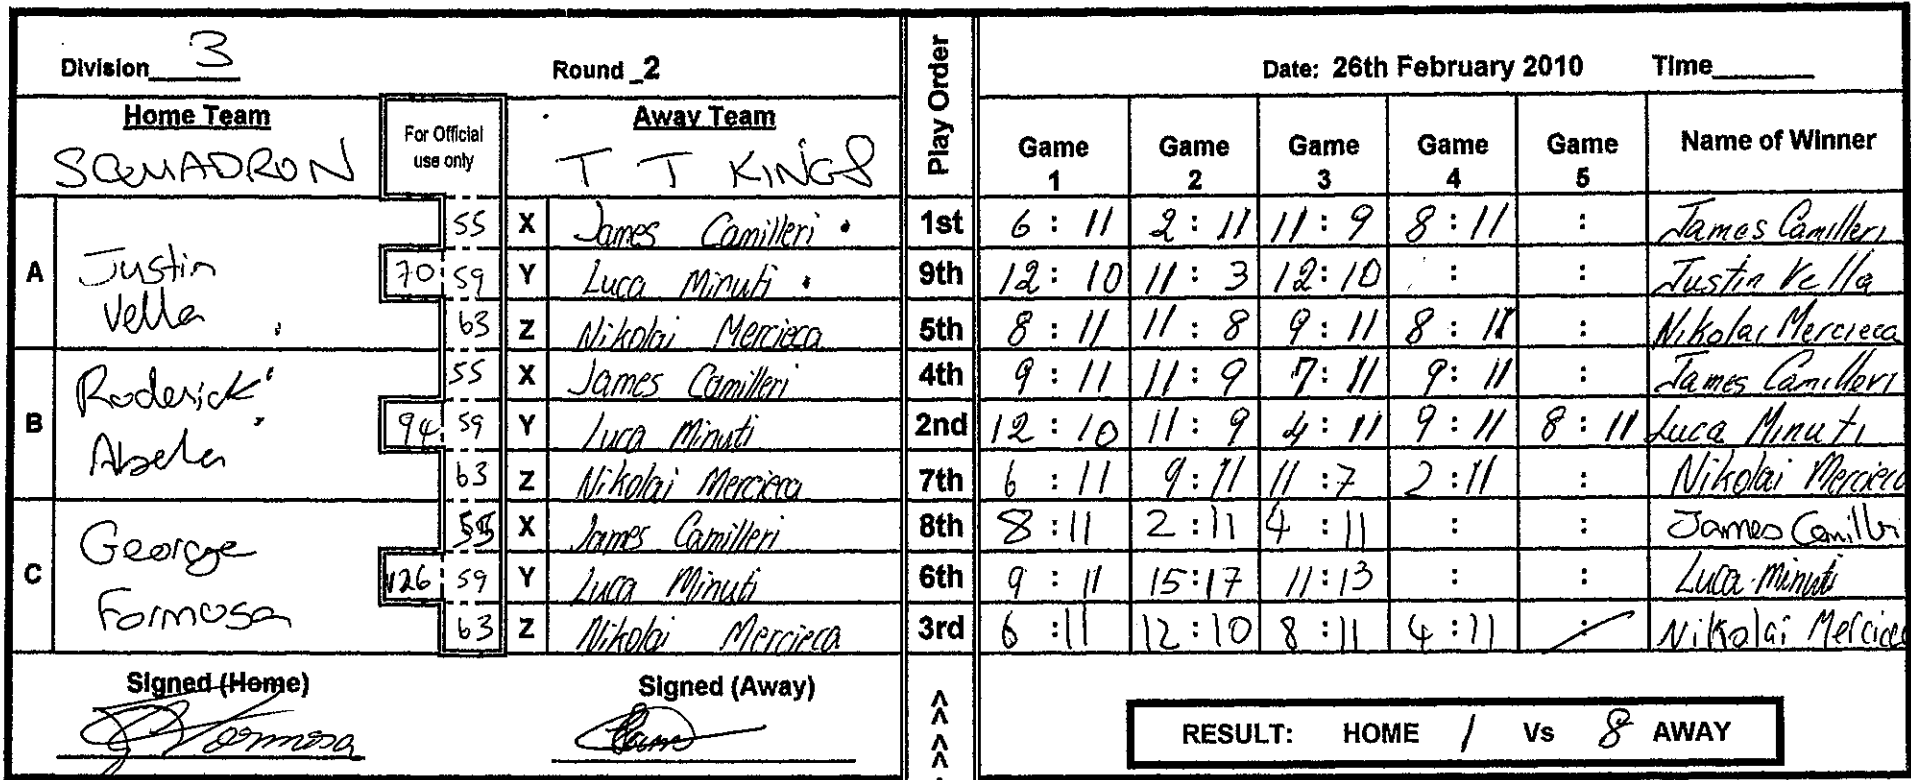 Division 3 Round 2 Date: 26th February 2010 Time
Home Team For Official use only Away Team Play Order Game 1 Game 2 Game 3 Game 4 Game 5 Name of Winner
SQUADRON T T KINGS
A Justin Vella 70 55 X James Camilleri 1st 6 : 11 2 : 11 11 : 9 8 : 11 : James Camilleri
59 Y Luca Minuti 9th 12 : 10 11 : 3 12 : 10 : : Justin Vella
63 Z Nikolai Mercieca 5th 8 : 11 11 : 8 9 : 11 8 : 11 : Nikolai Mercieca
B Roderick Abela 94 55 X James Camilleri 4th 9 : 11 11 : 9 7 : 11 9 : 11 : James Camilleri
59 Y Luca Minuti 2nd 12 : 10 11 : 9 4 : 11 9 : 11 8 : 11 Luca Minuti
63 Z Nikolai Mercieca 7th 6 : 11 9 : 11 11 : 7 2 : 11 : Nikolai Mercieca
C George Formosa 126 55 X James Camilleri 8th 8 : 11 2 : 11 4 : 11 : : James Camilleri
59 Y Luca Minuti 6th 9 : 11 15 : 17 11 : 13 : : Luca Minuti
63 Z Nikolai Mercieca 3rd 6 : 11 12 : 10 8 : 11 4 : 11 : Nikolai Mercieca
Signed (Home) Signed (Away) >>>>
Formosa
RESULT: HOME 1 Vs 8 AWAY